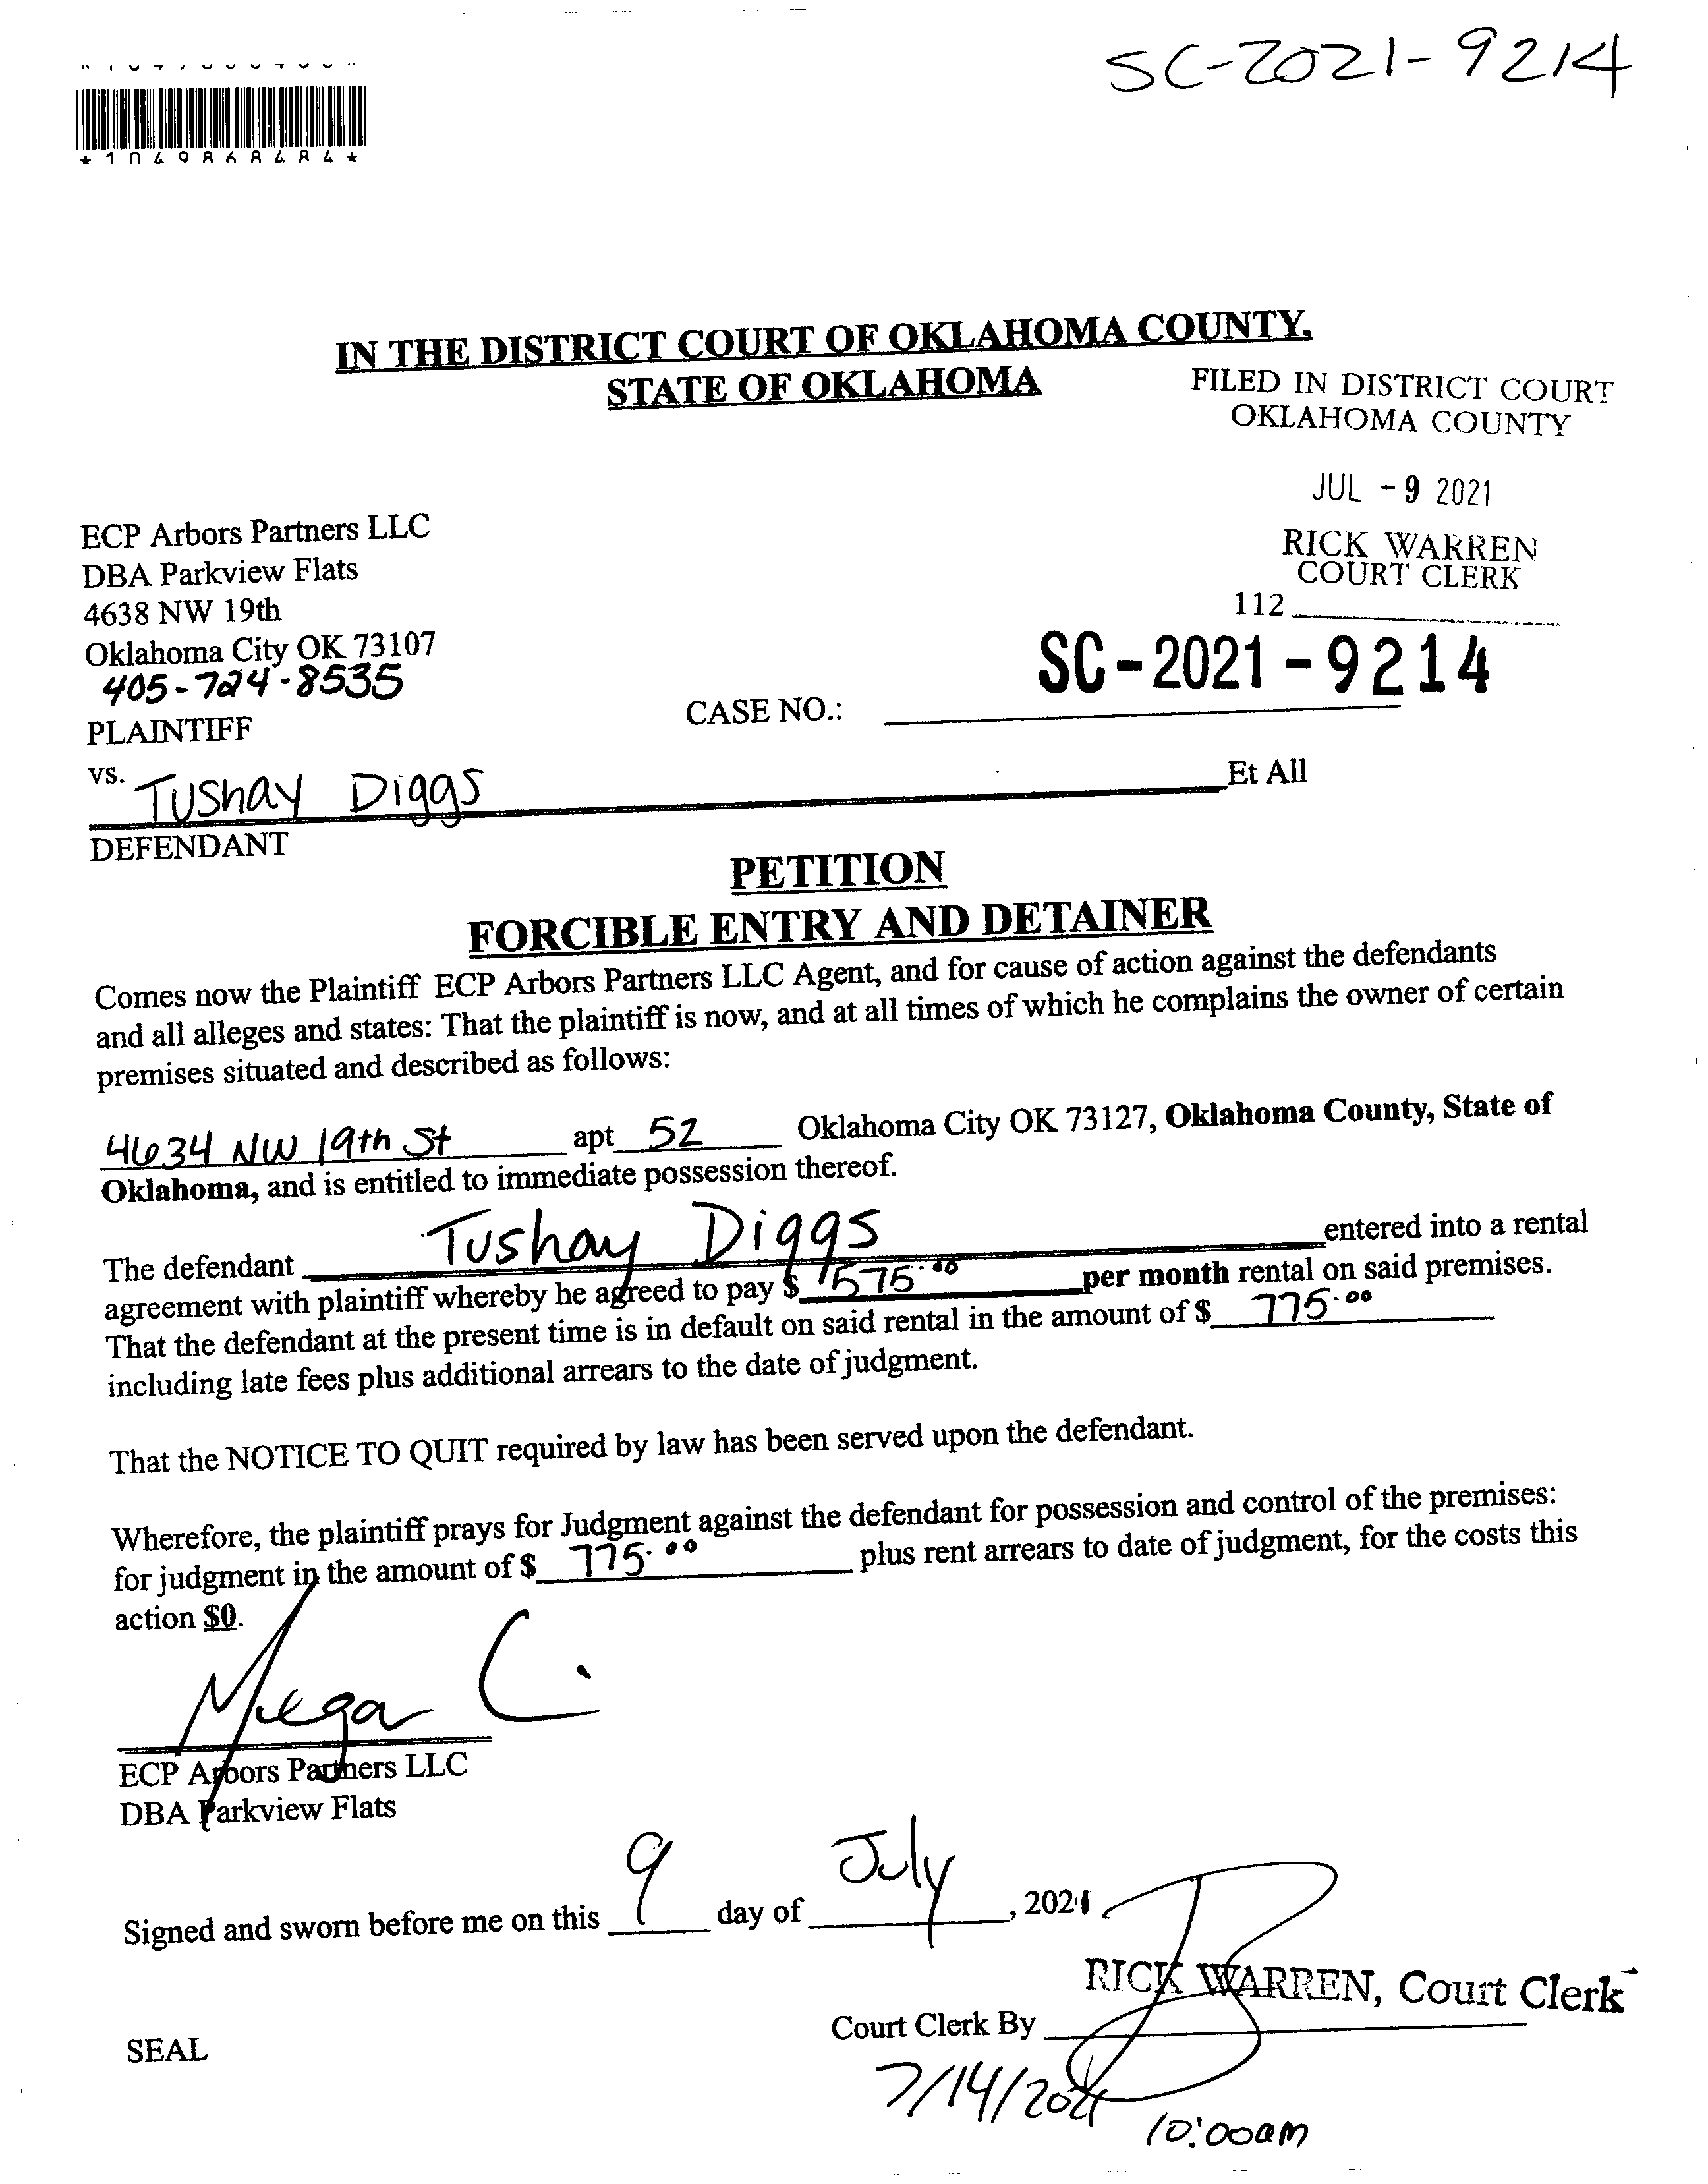 SC-2021-9214
*1049868484*
IN THE DISTRICT COURT OF OKLAHOMA COUNTY,
STATE OF OKLAHOMA
FILED IN DISTRICT COURT
OKLAHOMA COUNTY
JUL - 9 2021
RICK WARREN
COURT CLERK
112
ECP Arbors Partners LLC
DBA Parkview Flats
4638 NW 19th
Oklahoma City OK 73107
405-724-8535
PLAINTIFF
CASE NO.: SC-2021-9214
vs. Tushay Diggs Et All
DEFENDANT
PETITION
FORCIBLE ENTRY AND DETAINER
Comes now the Plaintiff ECP Arbors Partners LLC Agent, and for cause of action against the defendants
and all alleges and states: That the plaintiff is now, and at all times of which he complains the owner of certain
premises situated and described as follows:
4634 NW 19th St apt 52 Oklahoma City OK 73127, Oklahoma County, State of
Oklahoma, and is entitled to immediate possession thereof.
The defendant Tushay Diggs entered into a rental
agreement with plaintiff whereby he agreed to pay $ 575.00 per month rental on said premises.
That the defendant at the present time is in default on said rental in the amount of $ 775.00
including late fees plus additional arrears to the date of judgment.
That the NOTICE TO QUIT required by law has been served upon the defendant.
Wherefore, the plaintiff prays for Judgment against the defendant for possession and control of the premises:
for judgment in the amount of $ 775.00 plus rent arrears to date of judgment, for the costs this
action $0.
Megan C.
ECP Arbors Partners LLC
DBA Parkview Flats
Signed and sworn before me on this 9 day of July, 2021
RICK WARREN, Court Clerk
Court Clerk By
SEAL
7/14/2021
10:00am